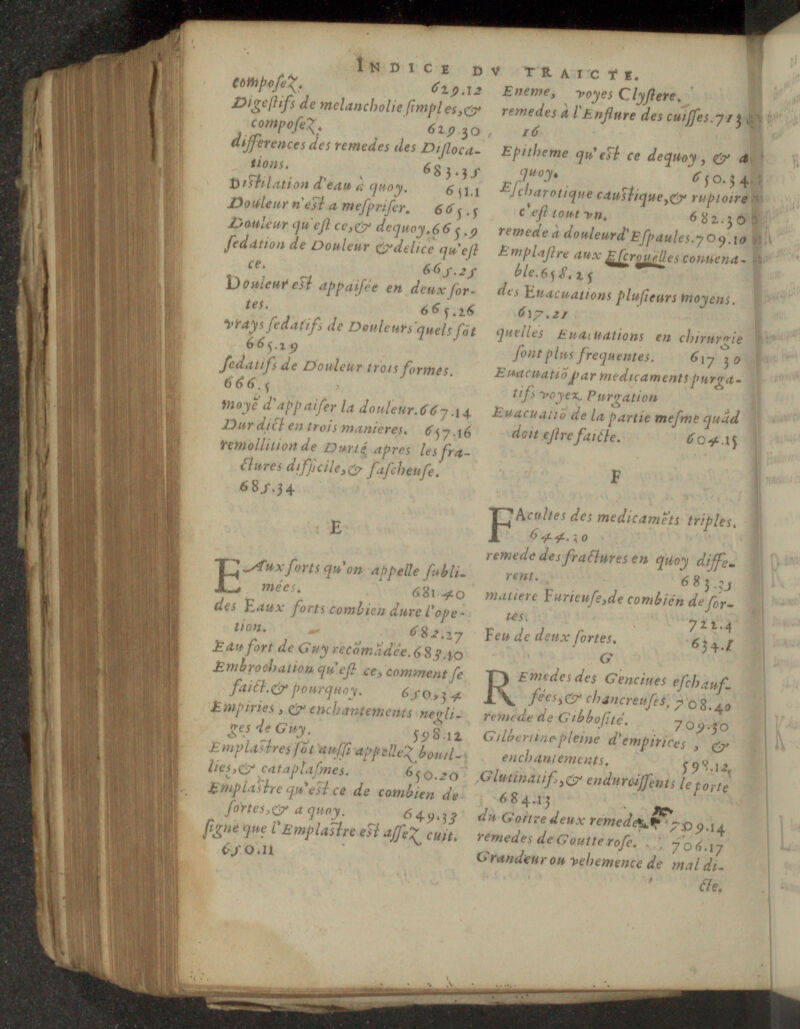 INDICE DV TRAICTE.
compoſeZ. 629.12
Digeſtifs de melancholie ſimples,&
compoſeZ. 629.30
differences des remedes des Diſloca-
tions. 683.35
Diſtilation d'eau à quoy. 651.1
Douleur n'eſt a meſpriſer. 665.5
Douleur qu'eſt ce,& dequoy.665.9
ſedation de Douleur & delice qu'eſt
ce. 665.25
Douleur eſt appaiſée en deux ſor-
tes. 665.26
vrays ſedatifs de Douleurs quels ſōt
665.29
ſedatifs de Douleur trois formes.
666.5
moyē d'appaiſer la douleur.667.14
Dur dict en trois manieres. 657.16
remollition de Durté apres les fra-
ctures difficile,& faſcheuſe.
685.34
E
EAux forts qu'on appelle ſubli-
mées. 681.40
des Eaux forts combien dure l'ope-
tion. 682.27
Eau fort de Guy recōmādée.683.10
Embrochation qu'eſt ce, comment ſe
faict.& pourquoy. 650,34
Empiries , & enchantements negli-
ges de Guy. 598.12
Emplaſtres ſōt auſſi appelleZ bouil-
lies,& cataplaſmes. 650.20
Emplaſtre qu'eſt ce de combien de
ſortes,& a quoy. 649.33
ſigne que l'Emplaſtre eſt aſſeZ cuit.
650.11
Eneme, voyes Clyſtere.
remedes à l'Enflure des cuiſſes.713
16
Epitheme qu'eſt ce dequoy, & a
quoy. 650.34
Eſcharotique cauſtique,& ruptoire
c'eſt tout vn. 682.36
remede à douleur d'Eſpaules.709.10
Emplaſtre aux Eſcrouelles conuena-
ble.658.25
des Euacuations pluſieurs moyens.
617.21
quelles Euacuations en chirurgie
ſont plus frequentes. 617 30
Euacuatiō par medicaments purga-
tifs voyez Purgation
Euacuatiō de la partie meſme quād
doit eſtre faicte. 604.15
F
FAcultes des medicamēts triples.
644.10
remede des fractures en quoy diffe-
rent. 683.35
matiere Furieuſe,de combien de ſor-
tes. 722.4
Feu de deux ſortes. 634.1
G
REmedes des Genciues eſchauf-
fées,& chancreuſes, 708.40
remede de Gibboſité. 709.30
Gilbertine pleine d'empirices , &
enchantements. 598.12
Glutinatifs,& enduroiſſents le porte
684.13
du Goitre deux remedes. 709.14
remedes de Goutte roſe. 706.17
Grandeur ou vehemence de mal di-
cte.